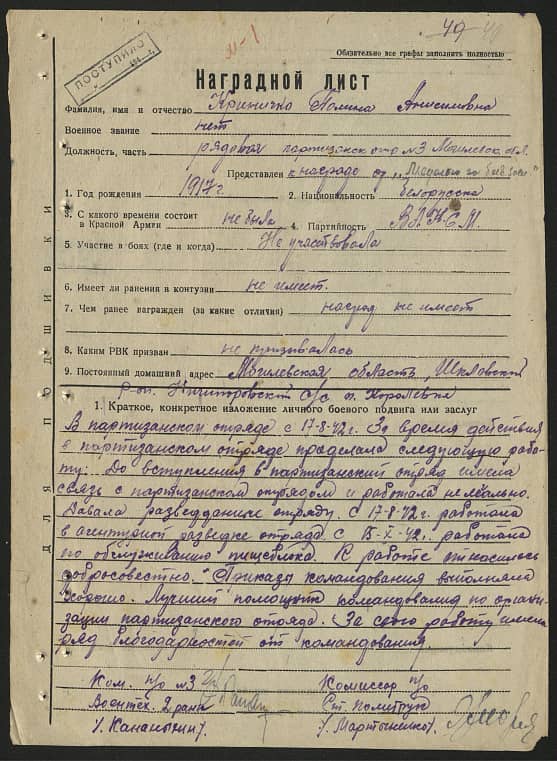 49
М-1
ПОСТУПИЛО
Обязательно все графы заполнить полностью
Наградной лист
Фамилия, имя и отчество Криничко Полина Анисимовна
Военное звание нет
Должность, часть рядовая партизанск. отр. №3 Могилевск. обл.
Представлен к награде
1. Год рождения 1917 г. 2. Национальность белорусска
3. С какого времени состоит
в Красной Армии не была 4. Партийность ВЛКСМ
5. Участие в боях (где и когда) Не участвовала
6. Имеет ли ранения и контузии не имеет.
7. Чем ранее награжден (за какие отличия) наград не имеет
8. Каким РВК призван не призывалась
9. Постоянный домашний адрес Могилевская область, Шкловский
р-он. с/с
1. Краткое, конкретное изложение личного боевого подвига или заслуг
В партизанском отряде с 17-8-42г. За время действия
в партизанском отряде проделала следующую рабо-
ту: До вступления в партизанский отряд имела
связь с партизанском отрядом и работала нелегально.
Давала разведданные отряду. с 17-8-42г. работала
в агентурной разведке отряда. с 15-X-42г. работала
по обслуживанию пищеблока. К работе относилась
добросовестно. Приказы командования выполняла
хорошо. Лучший помощник командования по органи-
зации партизанского отряда. За свою работу имела
ряд благодарностей от командования.
Ком. п/о №3 Комиссар п/о
Воентех. 2 ранга Ст. политрук
/Мартыненко/
ДЛЯ ПОДШИВКИ